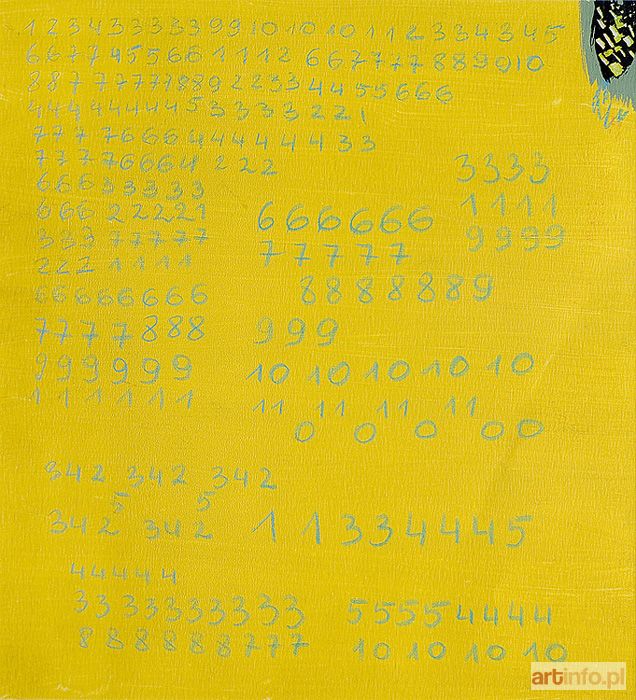 1 2 3 4 3 3 3 3 3 9 9 10 10 10 1 1 2 3 3 4 3 4 5
6 6 7 7 4 5 5 6 6 1 1 1 2 6 6 7 7 7 7 8 8 9 0 10
8 8 7 7 7 7 7 7 8 8 9 2 2 3 3 4 4 5 5 6 6 6
4 4 4 4 4 4 4 4 5 3 3 3 3 2 2 1
7 7 7 7 6 6 6 4 4 4 4 4 4 4 3 3
7 7 7 7 6 6 6 4 2 2 2
3 3 3 3
6 6 6 3 3 3 3 3
1 1 1 1
6 6 6 2 2 2 2 1
6 6 6 6 6 6
9 9 9 9
3 3 3 7 7 7 7 7
7 7 7 7 7
2 2 2 1 1 1 1
8 8 8 8 8 8 9
6 6 6 6 6 6 6 6
7 7 7 7 8 8 8
9 9 9
9 9 9 9 9 9
10 10 10 10 10
1 1 1 1 1 1
11 11 11 11
0 0 0 0 0
342 342 342
5 5
342 342
1 1 3 3 4 4 4 5
4 4 4 4 4
3 3 3 3 3 3 3 3 3 3
5 5 5 5 4 4 4 4
8 8 8 8 8 8 7 7 7
10 10 10 10
artinfo.pl